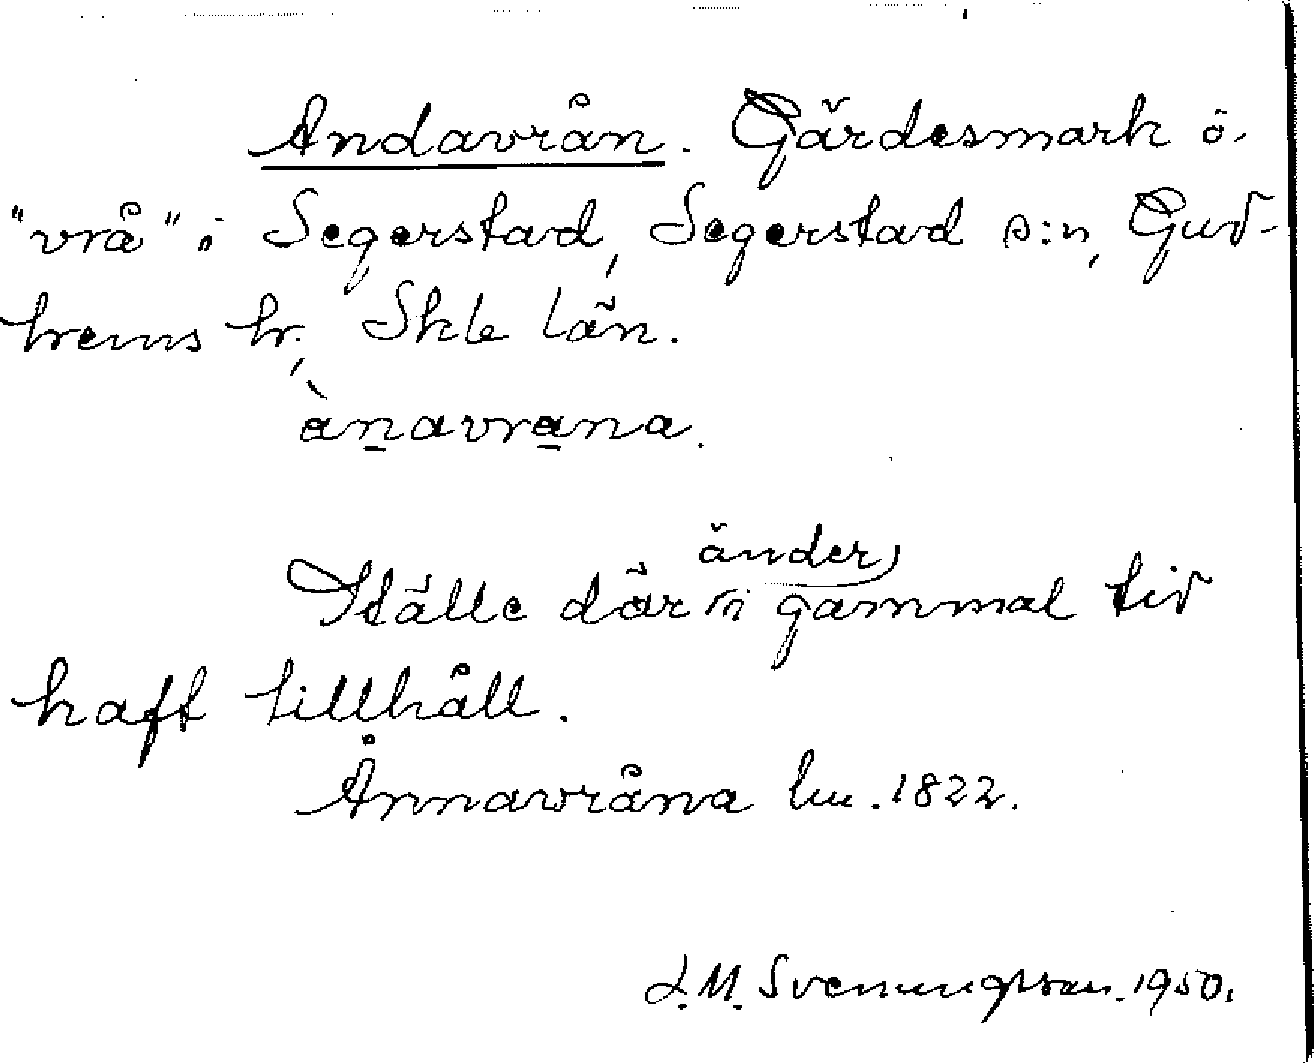 Andavrån. Gärdesmark ö.
"vrå" i Segerstad, Segerstad s:n, Gud-
hems hr, Skb län.
ànavrana.
änder
Ställe där i gammal tid
haft tillhåll.
Ånnavråna lm. 1822.
L.M. Svenungsson. 1950.